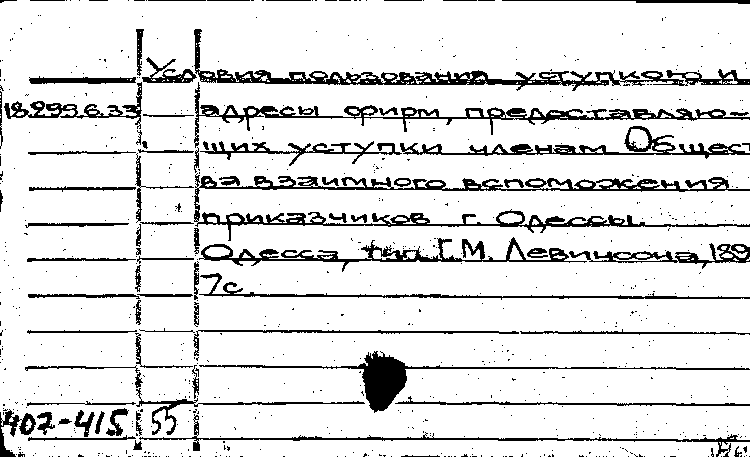 Условия пользования уступкою и
18.299.6.33 адресы фирм, предоставляю-
щих уступки членам Общест
ва взаимного вспоможения
приказчиков г. Одессы.
Одесса, тип. Г.М. Левинсона, 189
7с.
407-415 55